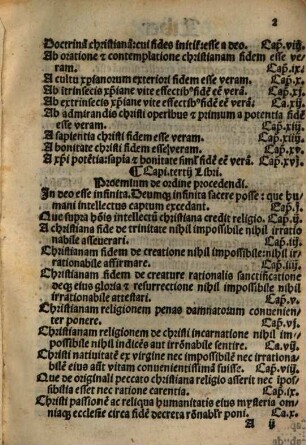 2
Doctrinā christianā: cui fides initiṫ: esse a deo. Cap̄. viij.
Ab oratione ⁊ contemplatione christianam fidem esse ve
ram. Cap̄. ix.
A cultu xp̄ianorum exteriori fidem esse veram. Cap̄. x.
Ab ītrinsecis xp̄iane vite effectibꝰ fidē eē verā. Cap̄. xj.
Ab extrinsecis xp̄iane vite effectibꝰ fidē eē verā. Cap̄. xij.
Ab admirandis christi operibus ⁊ primum a potentia fidē
esse veram. Cap̄. xiij.
A sapientia christi fidem esse veram. Cap̄. xiiij.
A bonitate christi fidem esse veram. Cap̄. xv.
A xp̄i potētia: sapīa ⁊ bonitate siml̄ fidē eē verā. Cap̄. xvj.
¶ Capi. tertij Libri.
Proemium de ordine procedendi.
In deo esse infinita. Deumqꝫ infinita facere posse: que hu
mani intellectus captum excedant. Cap̄. j.
Que supra hōis intellectū christiana credit religio. Cap̄. ij.
A christiana fide de trinitate nihil impossibile nihil irratio
nabile asseuerari. Cap̄. iij.
Christianam fidem de creatione nihil impossibile: nihil ir
rationabile affirmare. Cap̄. iiij.
Christianam fidem de creature rationalis sanctificatione
deqꝫ eius gloria ⁊ resurrectione nihil impossibile nihil
irrationabile attestari. Cap̄. v.
Christianam religionem penas damnatorum conuenien
ter ponere. Cap̄. vj.
Christianam religionem de christi incarnatione nihil im
possibile nihil indicēs aut irrōnabile sentire. Ca. vij.
Christi natiuitatē ex virgine nec impossibilē nec irrationa
bilē eius aūt vitam conuenientissimā fuisse. Cap̄. viij.
Que de originali peccato christiana religio asserit nec ipos
sibilia esset nec ratione carentia. Cap̄. ix.
Christi passionē ac reliqua humanitatis eius mysteria om
niaqꝫ ecclesie circa fidē decreta rōnabꝉr poni. Ca. x.
A ij